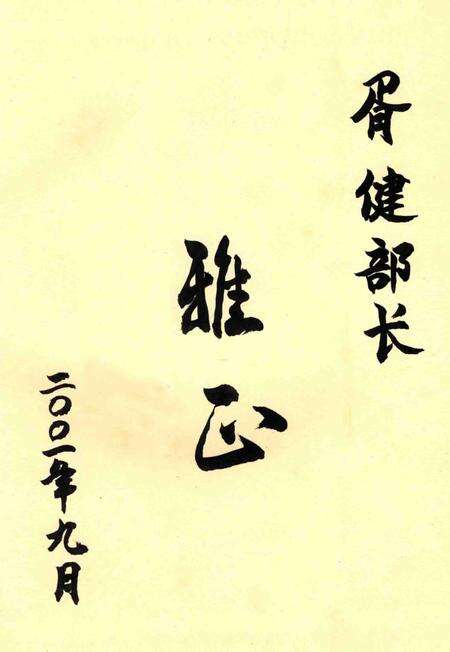 胥健部长
雅正
二〇〇一年九月